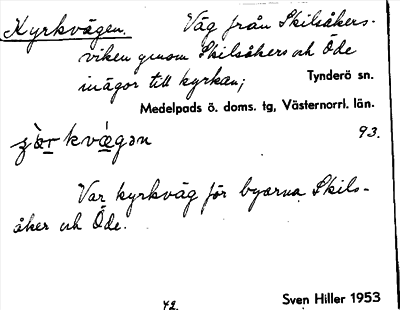 Kyrkvägen. Väg från Skilsåkers-
viken genom Skilsåkers och Öde
inägor till kyrkan;
Tynderö sn.
Medelpads ö. doms. tg, Västernorrl. län.
93.
kvǽgən
Var kyrkväg för byarna Skils-
åker och Öde.
42.
Sven Hiller 1953